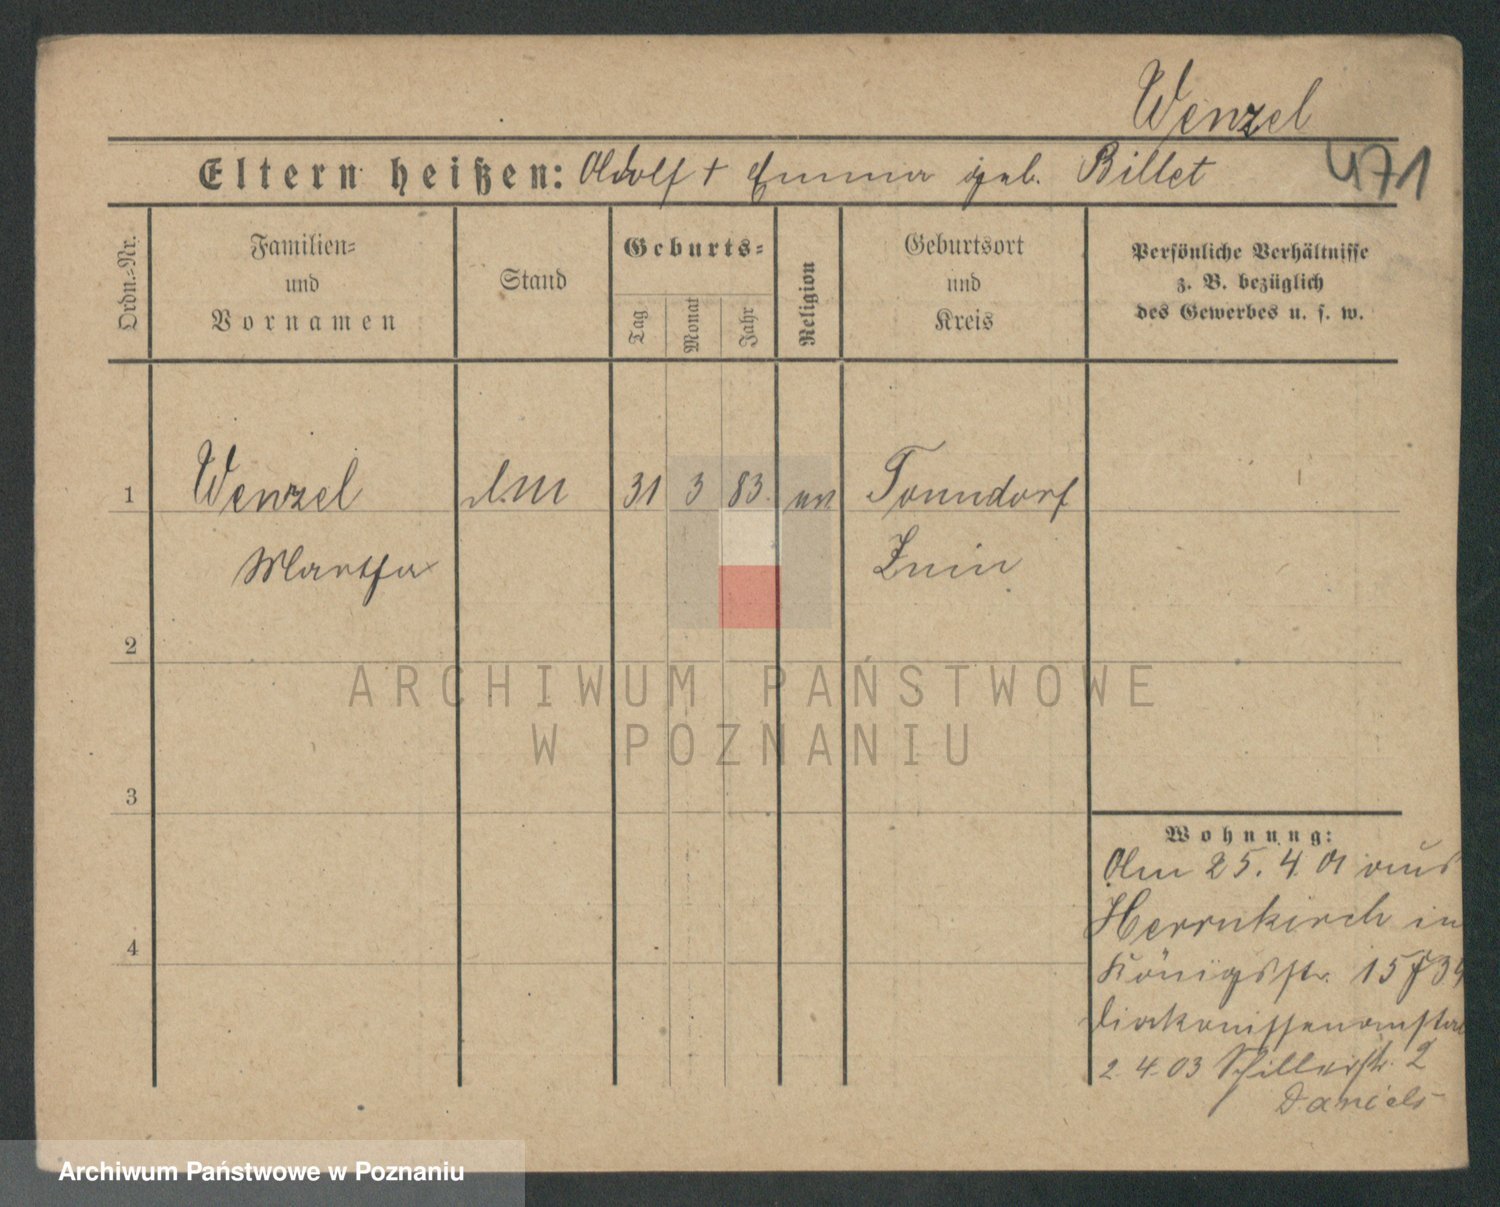 Wenzel
Eltern heißen: Adolf + Emma geb. Billet
471
Ordn.-Nr.
Familien-
und
Vornamen
Stand
Geburts-
Tag
Monat
Jahr
Religion
Geburtsort
und
Kreis
Persönliche Verhältnisse
z. B. bezüglich
des Gewerbes u. s. w.
1 Wenzel 31 3 83. Tonndorf
Martha Znin
2
ARCHIWUM PAŃSTWOWE
W POZNANIU
3
4
Wohnung:
Am 25. 4. 01 aus
Herrnkirch in
Königsstr. 15
Diakonissenanstal
2. 4. 03 Schillerstr. 2
Daniels
Archiwum Państwowe w Poznaniu